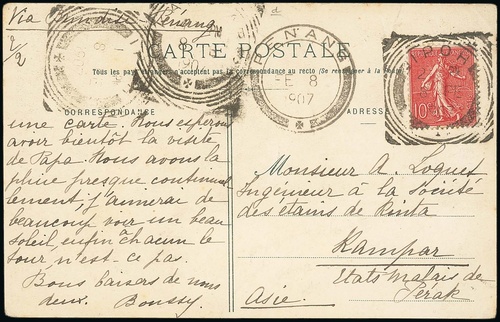 Via Brindisi Penang
2/2
CARTE POSTALE
Tous les pays étrangers n'acceptent pas la correspondance au recto (Se renseigner à la Poste)
PENANG
FE 8
1907
IPOH
10c
CORRESPONDANCE
ADRESSE
une carte. Nous espérons
avoir bientôt la visite
de Papa. Nous avons la
pluie presque continuel
lement, j'aimerai de
beaucoup voir un beau
soleil, enfin à chacun le
tour n'est-ce pas.
Bons baisers de nous
deux. Boussy.
Monsieur A. Loquet
Ingénieur à la Société
des étains de Kinta
Kampar
Etats malais de
Pérak
Asie.